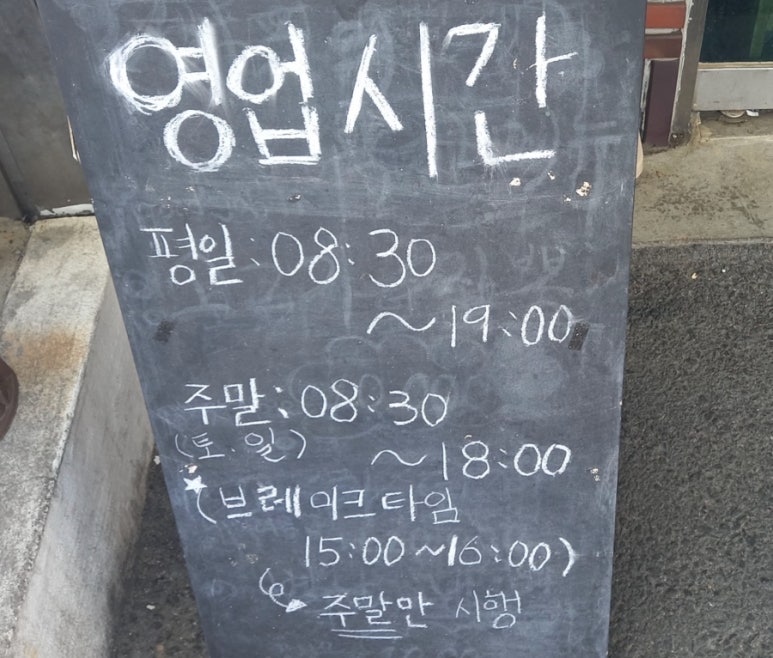 영업시간
평일: 08:30
~19:00
주말: 08:30
(토.일)
~18:00
(브레이크타임
15:00~16:00)
주말만 시행